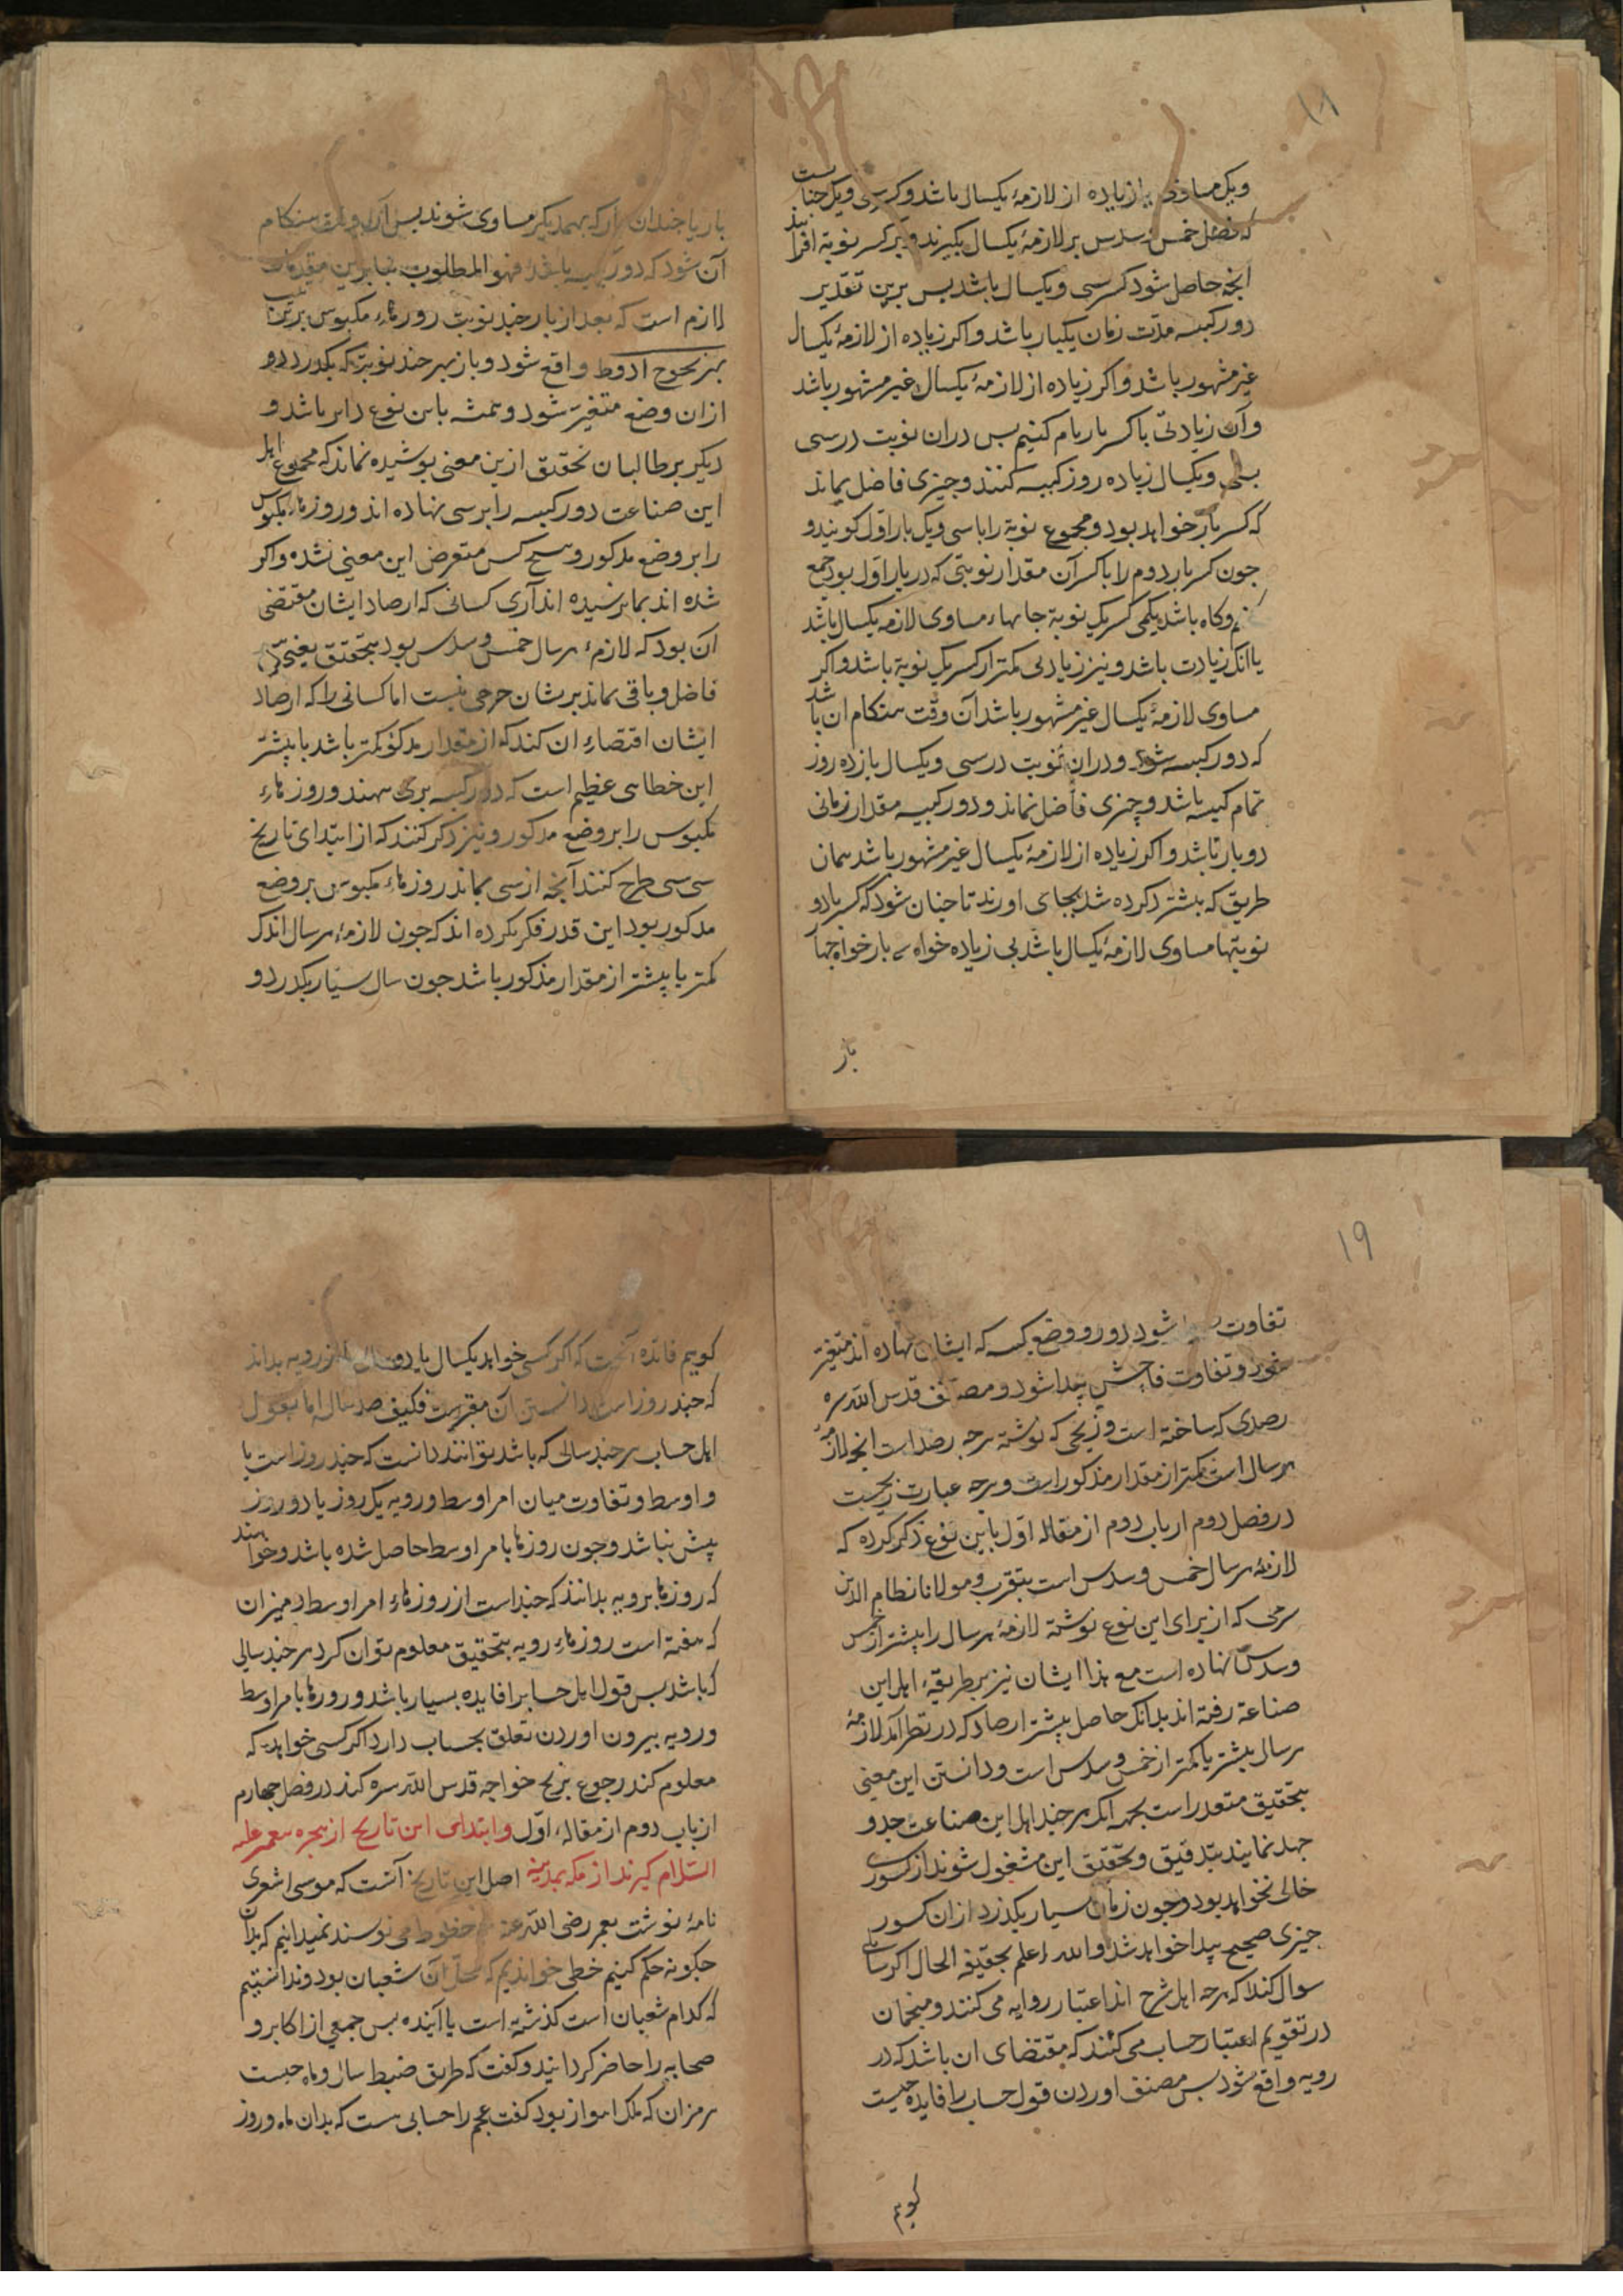 ۱۸
ویک مساوی یا زیاده از لازمهٔ یکسال باشد و کسر سی ویک چنانست
که فضل خمس و سدس بر لازمهٔ یکسال بگیرند و بر کسر نوبة افزایند
انچه حاصل شود کسر سی ویکسال باشد بس برین تقدیر
دور کبیسه مدّت زمان یکبار باشد واکر زیاده از لازمهٔ یکسال
غیر مشهور باشد واکر زیاده از لازمهٔ یکسال غیر مشهور باشد
وآن زیادتی با کسر بار یام کنیم بس دران نوبت درسی
ویکسال زیاده روز کبیسه کنند وچیزی فاضل بماند
که کسر بار خواهد بود ومجموع نوبة را باسی ویک بار اوّل کویند و
جون کسر بار دوم را با کسر آن مقدار نوبتی که در بار اوّل بود جمع
وکاه باشد یکی کسر یک نوبة جا بهاء مساوی لازمه یکسال باشد
یا انک زیادت باشد ونیز زیادتی کمتر از کسر یک نوبة باشد واکر
مساوی لازمهٔ یکسال غیر مشهور باشد آن وقت هنکام ان باشد
که دور کبیسه شود ودران نوبت درسی ویکسال یازده روز
تمام کبیسه باشد وچیزی فاضل نماند ودور کبیسه مقدار زمانی
دوبار باشد واکر زیاده از لازمهٔ یکسال غیر مشهور باشد همان
طریق که بیشتر کرده شد بجای اورند تا جنان شود که کسر بار و
نوبتها مساوی لازمهٔ یکسال باشد بی زیاده خواه سه بار خواه جهار
بار
بار یا جندان بار که بهمدیکر مساوی شوند بس آن وقت هنکام
آن شود که دور کبیسه باشد فهو المطلوب بنابرین مقدمات
لازم است که بعد از بار جند نوبت روزهاء مکبوس بر ترتیب
بهزیجوح ادوط واقع شود وباز بهر جند نوبتی که بکذرد و
ازان وضع متغیّر شود وهمیشه باین نوع دایر باشد و
دیکر بر طالبان تحقیق ازین معنی بوشیده نماند که مجموع اهل
این صناعت دور کبیسه را برسی نهاده اند وروزهاء مکبوس
را بر وضع مذکور وهیچ کس متعرض این معنی نشده واکر
شده اند بما نرسیده اند آری کسانی که ارصاد ایشان مقتضی
آن بود که لازمهٔ هر سال خمس وسدس بود بتحقیق یعنی
فاضل وباقی نماند بریشان حرجی نیست اما کسانی را که ارصاد
ایشان اقتضاء ان کند که از مقدار مذکور کمتر باشد یا بیشتر
این خطایی عظیم است که دور کبیسه برسی نهند وروزهاء
مکبوس را بر وضع مذکور ونیز ذکر کنند که از ابتدای تاریخ
سی سی طرح کنند آنچه از سی بماند روزهاء مکبوس بر وضع
مذکور بود این قدر فکر نکرده اند که جون لازمهٔ هر سال اندک
کمتر یا بیشتر از مقدار مذکور باشد جون سال بسیار بکذرد و
۱۹
تفاوت شود دور ووضع کبیسه که ایشان نهاده اند متغیّر
شود وتفاوت فاحش بیدا شود ومصنّف قدس اللّه سره
رصدی که ساخته است وزیجی که نوشته برجه رصد است انجه لازمهٔ
هر سال است کمتر از مقدار مذکور است وهرجه عبارت زیجست
در فصل دوم ار باب دوم از مقاله اوّل باین نوع ذکر کرده که
لازمهٔ هر سال خمس وسدس است بتقریب ومولانا نظام الدین
برجی که از برای این نوع نوشته لازمهٔ هر سال را بیشتر از خمس
وسدس نهاده است مع هذا ایشان نیز بر طریقهٔ اهل این
صناعة رفته اند بدانک حاصل بیشتر ارصاد که در نظر آمد لازمهٔ
هر سال بیشتر یا کمتر از خمس وسدس است ودانستن این معنی
بتحقیق متعذر است بجهه آنک هر جند اهل این صناعت جد و
جهد نمایند بتدقیق وتحقیق این مشغول شوند از کسوری
خالی نخواهد بود وجون زمان بسیار بکذرد ازان کسور
چیزی صحیح بیدا خواهد شد واللّه اعلم بحقیقة الحال اکر سایلی
سوال کند که هرجه اهل شرح اند اعتبار رؤیه می کنند ومنجمان
در تقویم اعتبار حساب می کنند که مقتضای ان باشد که در
رؤیه واقع شود بس مصنف اوردن قول حساب را فایده جیست
کویم
کویم فائده آنست که اکر کسی خواهد یکسال یا دو سال رویه بداند
که جند روز است دانستن آن مقرر است فکیف صد سال اما بقول
اهل حساب هر جند سالی که باشد توانند دانست که جند روز است با
واوسط وتفاوت میان امر اوسط ورویه یک روز یا دو روز
بیش نباشد وجون روزها بامر اوسط حاصل شده باشد وخواهند
که روزها برویه بدانند که جند است از روزهاء امر اوسط ومیزان
که هفته است روزهاء رویه بتحقیق معلوم توان کرد هر جند سالی
که باشد بس قول اهل حساب را فایده بسیار باشد وروزها بامر اوسط
ورویه بیرون اوردن تعلق بحساب دارد اکر کسی خواهد که
معلوم کند رجوع بزیج خواجه قدس اللّه سره کند در فصل جهارم
از باب دوم از مقالهٔ اوّل وابتدای این تاریخ از هجره بیغمبر علیه
السّلام کیرند از مکه بمدینه اصل این تاریخ آنست که موسی اشعری
نامهٔ نوشت بعمر رضی اللّه عنه خطوط می نویسند نمیدانیم که بدان
جکونه حکم کنیم خطی خواندیم که محلّ آن شعبان بود وندانستیم
که کدام شعبان است کذشته است یا آینده بس جمعی از اکابر و
صحابه را حاضر کردانید وکفت که طریق ضبط سال وماه جیست
هرمزان که ملک اهواز بود کفت عجم را حسابی هست که بدان ماه وروز